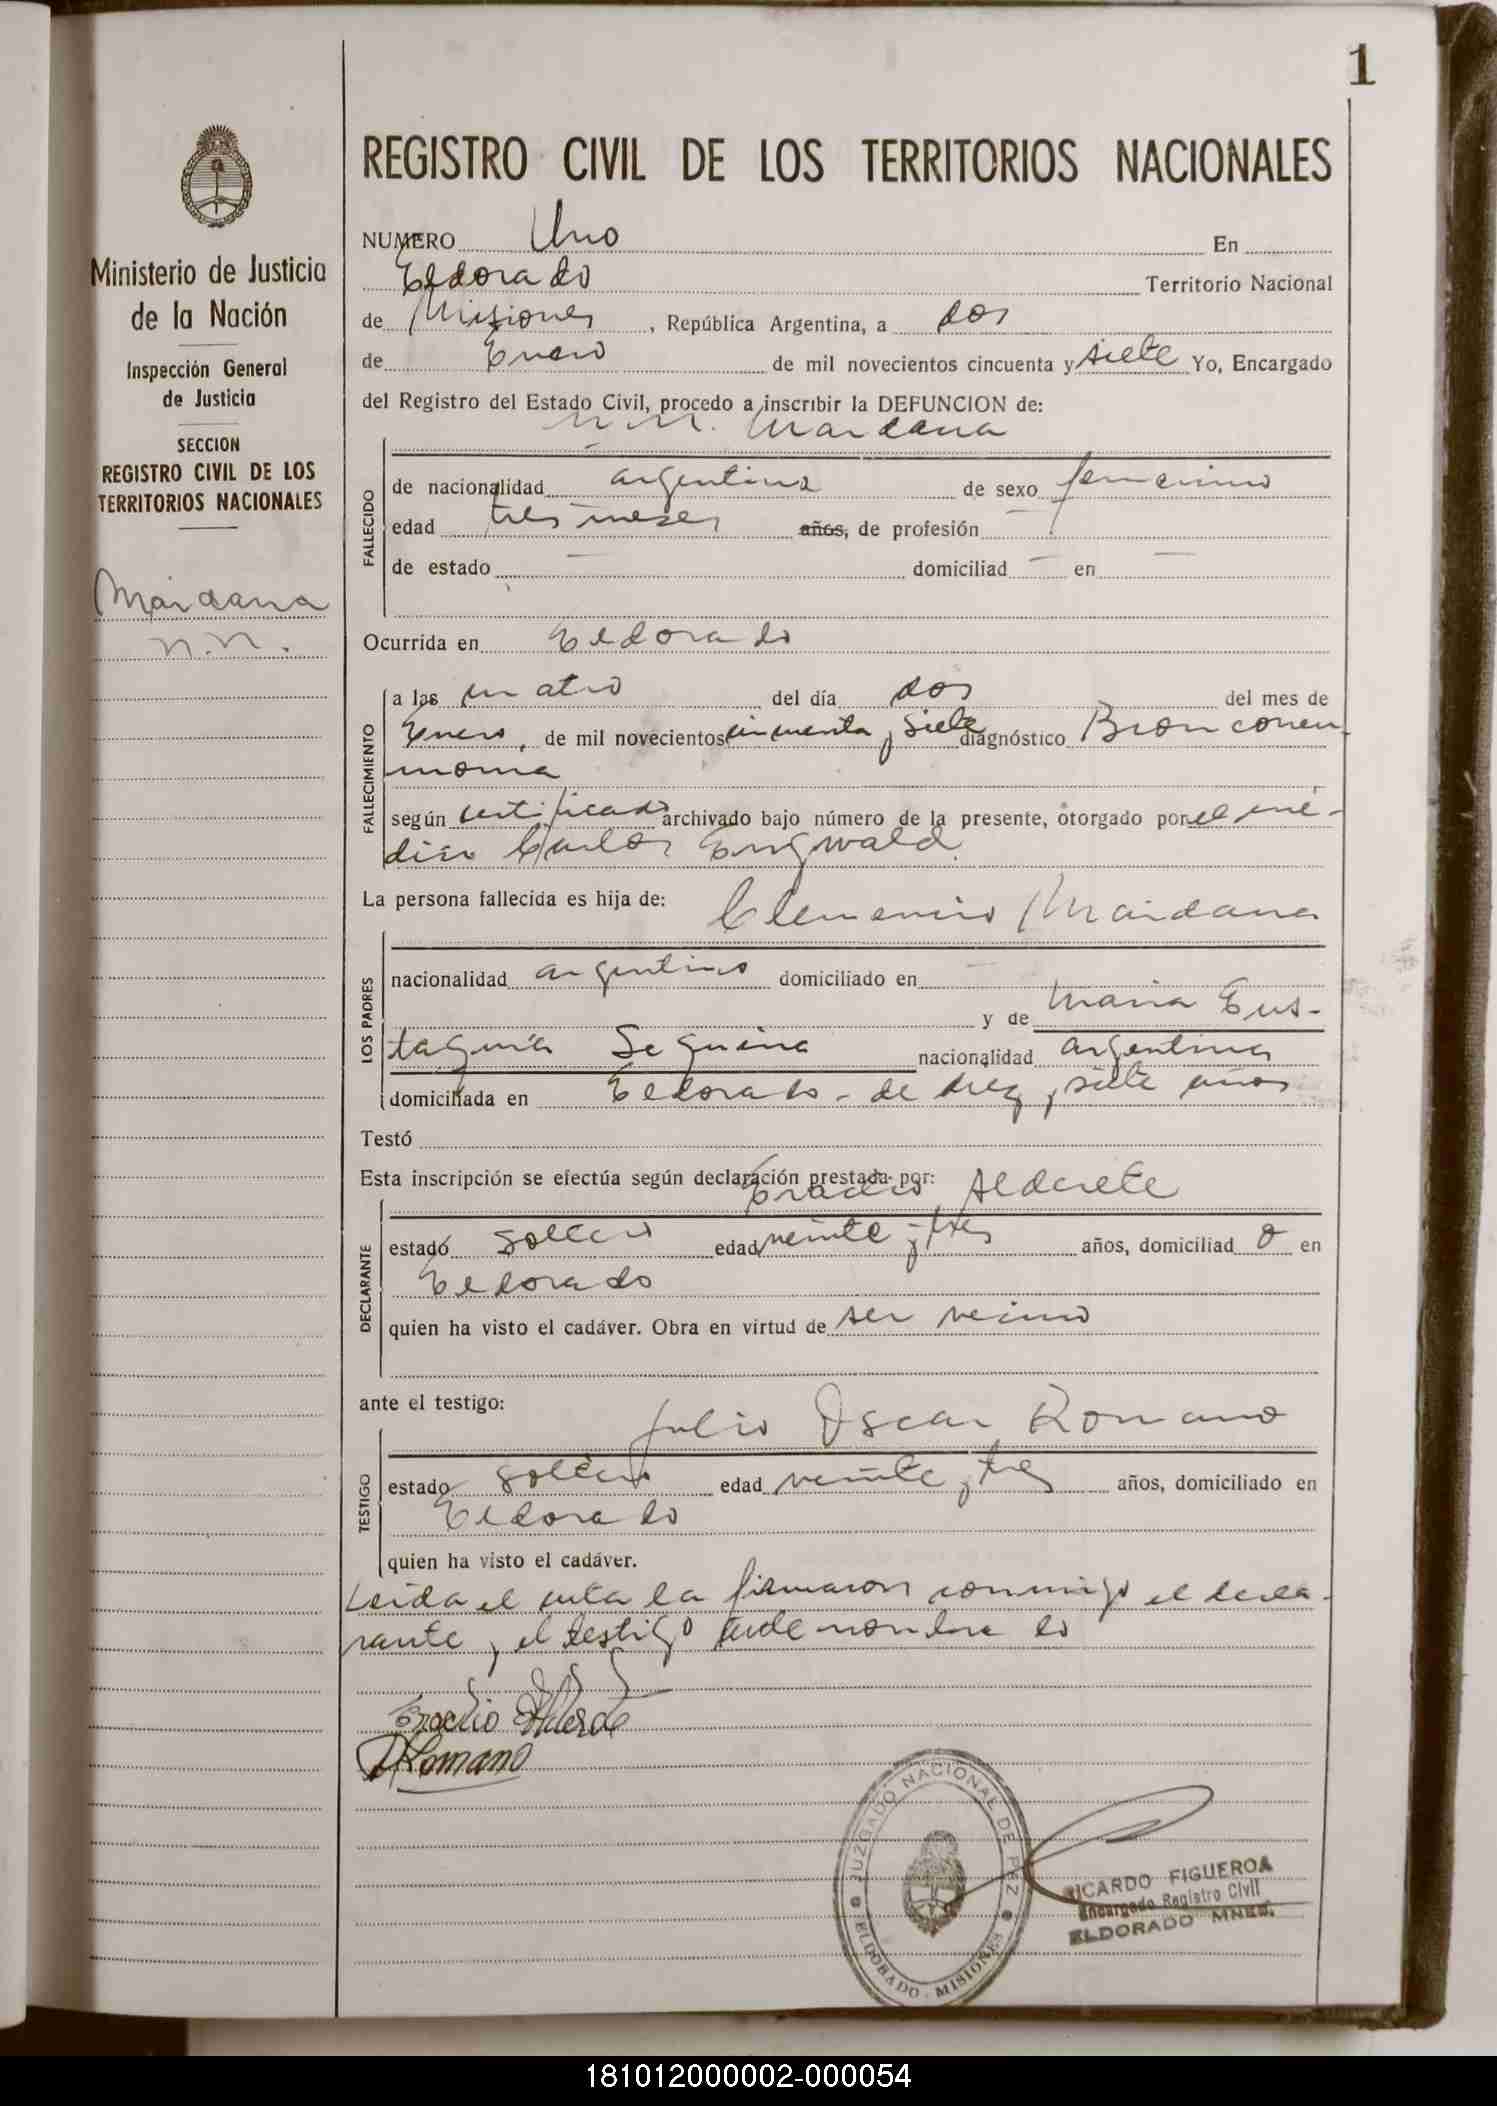 1
REGISTRO CIVIL DE LOS TERRITORIOS NACIONALES
Ministerio de Justicia
de la Nación
Inspección General
de Justicia
SECCION
REGISTRO CIVIL DE LOS
TERRITORIOS NACIONALES
Maidana
N.N.
NUMERO Uno En
Eldorado Territorio Nacional
de Misiones, República Argentina, a dos
de Enero de mil novecientos cincuenta y siete Yo, Encargado
del Registro del Estado Civil, procedo a inscribir la DEFUNCION de:
N.N. Maidana
FALLECIDO
de nacionalidad argentina de sexo femenino
edad tres meses años, de profesión —
de estado — domiciliad — en —
Ocurrida en Eldorado
FALLECIMIENTO
a las cuatro del día dos del mes de
Enero, de mil novecientos cincuenta y siete diagnóstico Bronconeu-
monia
según certificado archivado bajo número de la presente, otorgado por el mé-
dico Carlos
La persona fallecida es hija de: Clemencio Maidana
LOS PADRES
nacionalidad argentino domiciliado en —
y de Maria Eus-
taquia Sequeira nacionalidad argentina
domiciliada en Eldorado - de diez y siete años
Testó
Esta inscripción se efectúa según declaración prestada por: Eradio Alderete
DECLARANTE
estado soltero edad veinte y tres años, domiciliad o en
Eldorado
quien ha visto el cadáver. Obra en virtud de ser vecino
ante el testigo: Julio Oscar Romano
TESTIGO
estado soltero edad veinte y tres años, domiciliado en
Eldorado
quien ha visto el cadáver.
Leida el acta la firmaron conmigo el decla-
rante y el testigo del nombre do
Eradio Alderete
Romano
JUZGADO NACIONAL DE PAZ
ELDORADO - MISIONES
RICARDO FIGUEROA
Encargado Registro Civil
ELDORADO MNES.
181012000002-000054